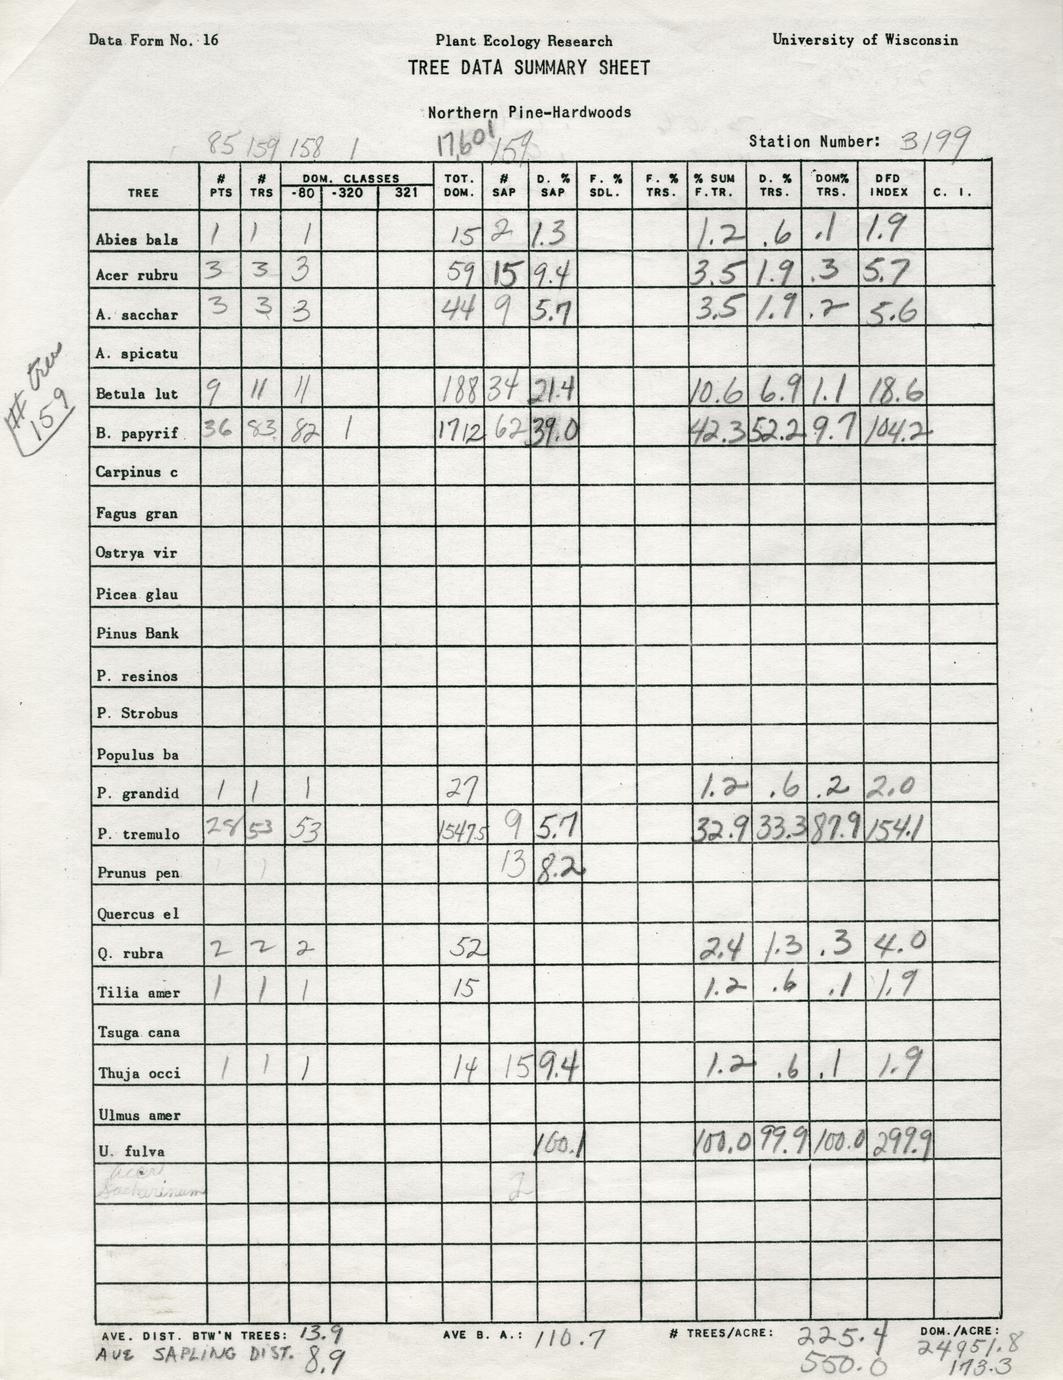 Data Form No. 16 Plant Ecology Research University of Wisconsin
TREE DATA SUMMARY SHEET
Northern Pine-Hardwoods
85 159 158 1 17,601 159 Station Number: 3199
TREE # PTS # TRS DOM. CLASSES -80 -320 321 TOT. DOM. # SAP D. % SAP F. % SDL. F. % TRS. % SUM F.TR. D. % TRS. DOM% TRS. DFD INDEX C. I.
Abies bals 1 1 1 15 2 1.3 1.2 .6 .1 1.9
Acer rubru 3 3 3 59 15 9.4 3.5 1.9 .3 5.7
A. sacchar 3 3 3 44 9 5.7 3.5 1.9 .2 5.6
A. spicatu
# trees
159
Betula lut 9 11 11 188 34 21.4 10.6 6.9 1.1 18.6
B. papyrif 36 83 82 1 1712 62 39.0 42.3 52.2 9.7 104.2
Carpinus c
Fagus gran
Ostrya vir
Picea glau
Pinus Bank
P. resinos
P. Strobus
Populus ba
P. grandid 1 1 1 27 1.2 .6 .2 2.0
P. tremulo 28 53 53 15475 9 5.7 32.9 33.3 87.9 154.1
Prunus pen 1 13 8.2
Quercus el
Q. rubra 2 2 2 52 2.4 1.3 .3 4.0
Tilia amer 1 1 1 15 1.2 .6 .1 1.9
Tsuga cana
Thuja occi 1 1 1 14 15 9.4 1.2 .6 .1 1.9
Ulmus amer
U. fulva 100.1 100.0 99.9 100.0 299.9
Acer
Saccharinum 2
AVE. DIST. BTW'N TREES: 13.9 AVE B. A.: 110.7 # TREES/ACRE: 225.4 DOM./ACRE: 24951.8
AVE SAPLING DIST. 8.9 550.0 173.3